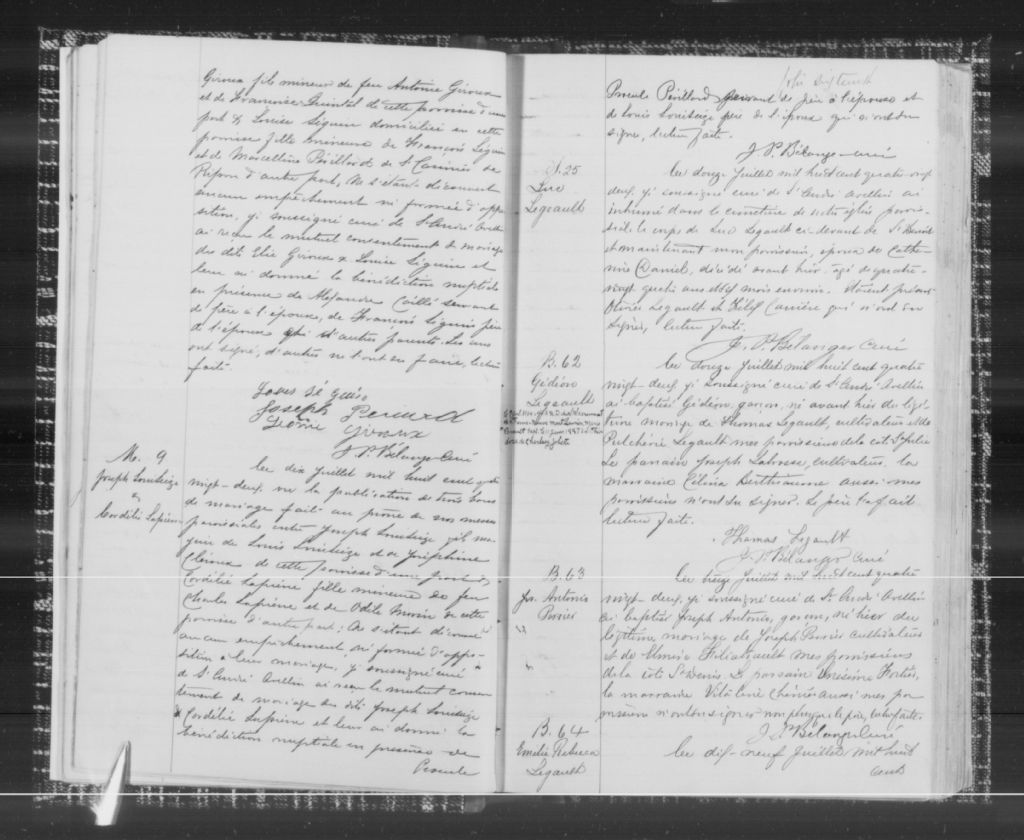 Giroux fils mineur de feu Antoine Giroux
et de Françoise Quintal de cette paroisse d'une
part & Louise Séguin domiciliée en cette
paroisse fille mineure de François Séguin
et de Marcelline Périllard de St Casimir de
Ripon d'autre part, Ne s'étant découvert
aucun empêchement ni formée d'oppo
sition, je soussigné curé de St André Avellin
ai reçu le mutuel consentement de mariage
des dits Elie Giroux & Louise Séguin et
leur ai donné la bénédiction nuptiale
en présence de Alexandre Caillé servant
de père à l'époux, de François Séguin père
de l'épouse & d'autres parents. Les uns
ont signé, d'autres ne l'ont su faire, lecture
faite.
Joseph
Giroux
J. P. Bélanger Curé
M. 9
Joseph Louiseize
&
Cordélie Lapierre
Le dix juillet mil huit cent quatre
vingt-deux, vu la publication de trois bans
de mariage faite au prône de nos messes
paroissiales entre Joseph Louiseize fils ma
jeur de Louis Louiseize et de Joséphine
de cette paroisse d'une part &
Cordélie Lapierre fille mineure de feu
Charles Lapierre et de Odile Morin de cette
paroisse d'autre part: Ne s'étant découvert
aucun empêchement, ni formée d'oppo-
sition à leur mariage, je soussigné curé
de St André Avellin ai reçu le mutuel consen
tement de mariage des dits Joseph Louiseize
& Cordélie Lapierre et leur ai donné la
bénédiction nuptiale en présence de
Procule
Procule Périllard servant de père à l'épouse et
de Louis Louiseize père de l'époux qui n'ont su
signer, lecture faite.
J. P. Bélanger curé
S. 25
Luc
Legeault
Le douze Juillet mil huit cent quatre vingt
deux, je soussigné curé de St André Avellin ai
inhumé dans le cimetière de notre église parois-
siale le corps de Luc Legault ci-devant de St Benoit
et maintenant mon paroissien, époux de Cathe-
rine Daniel, décédé avant hier, âgé de quatre-
vingt quatre ans et mois environ. Etaient présents
Olivier Legault et Carrière qui n'ont su
signer, lecture faite.
J. P. Bélanger Curé
B. 62
Gédéon
Legeault
Le douze Juillet mil huit cent quatre
vingt-deux, je soussigné curé de St André Avellin
ai baptisé Gédéon, garçon, né avant hier du légi-
time mariage de Thomas Legault, cultivateur & de
Pulchérie Legault mes paroissiens de la côte St
Le parrain Joseph Labrosse, cultivateur, la
marraine Célina Berthiaume aussi mes
paroissiens n'ont su signer. Le père l'a fait
lecture faite.
Thomas Legault
J. P. Bélanger curé
B. 63
Jos. Antonio
Perrier
Le treize Juillet mil huit cent quatre
vingt-deux, je soussigné curé de St André Avellin
ai baptisé Joseph Antonio, garçon, né hier du
légitime mariage de Joseph Perrier cultivateur
et de Elmire Filiatrault mes paroissiens
de la côte St Denis. Le parrain Onésime Fortier,
la marraine aussi mes pa
roissiens n'ont su signer non plus que le père, lecture faite.
J. P. Bélanger Curé
B. 64
Emélie Rébecca
Legault
Le dix-neuf Juillet mil huit
cent